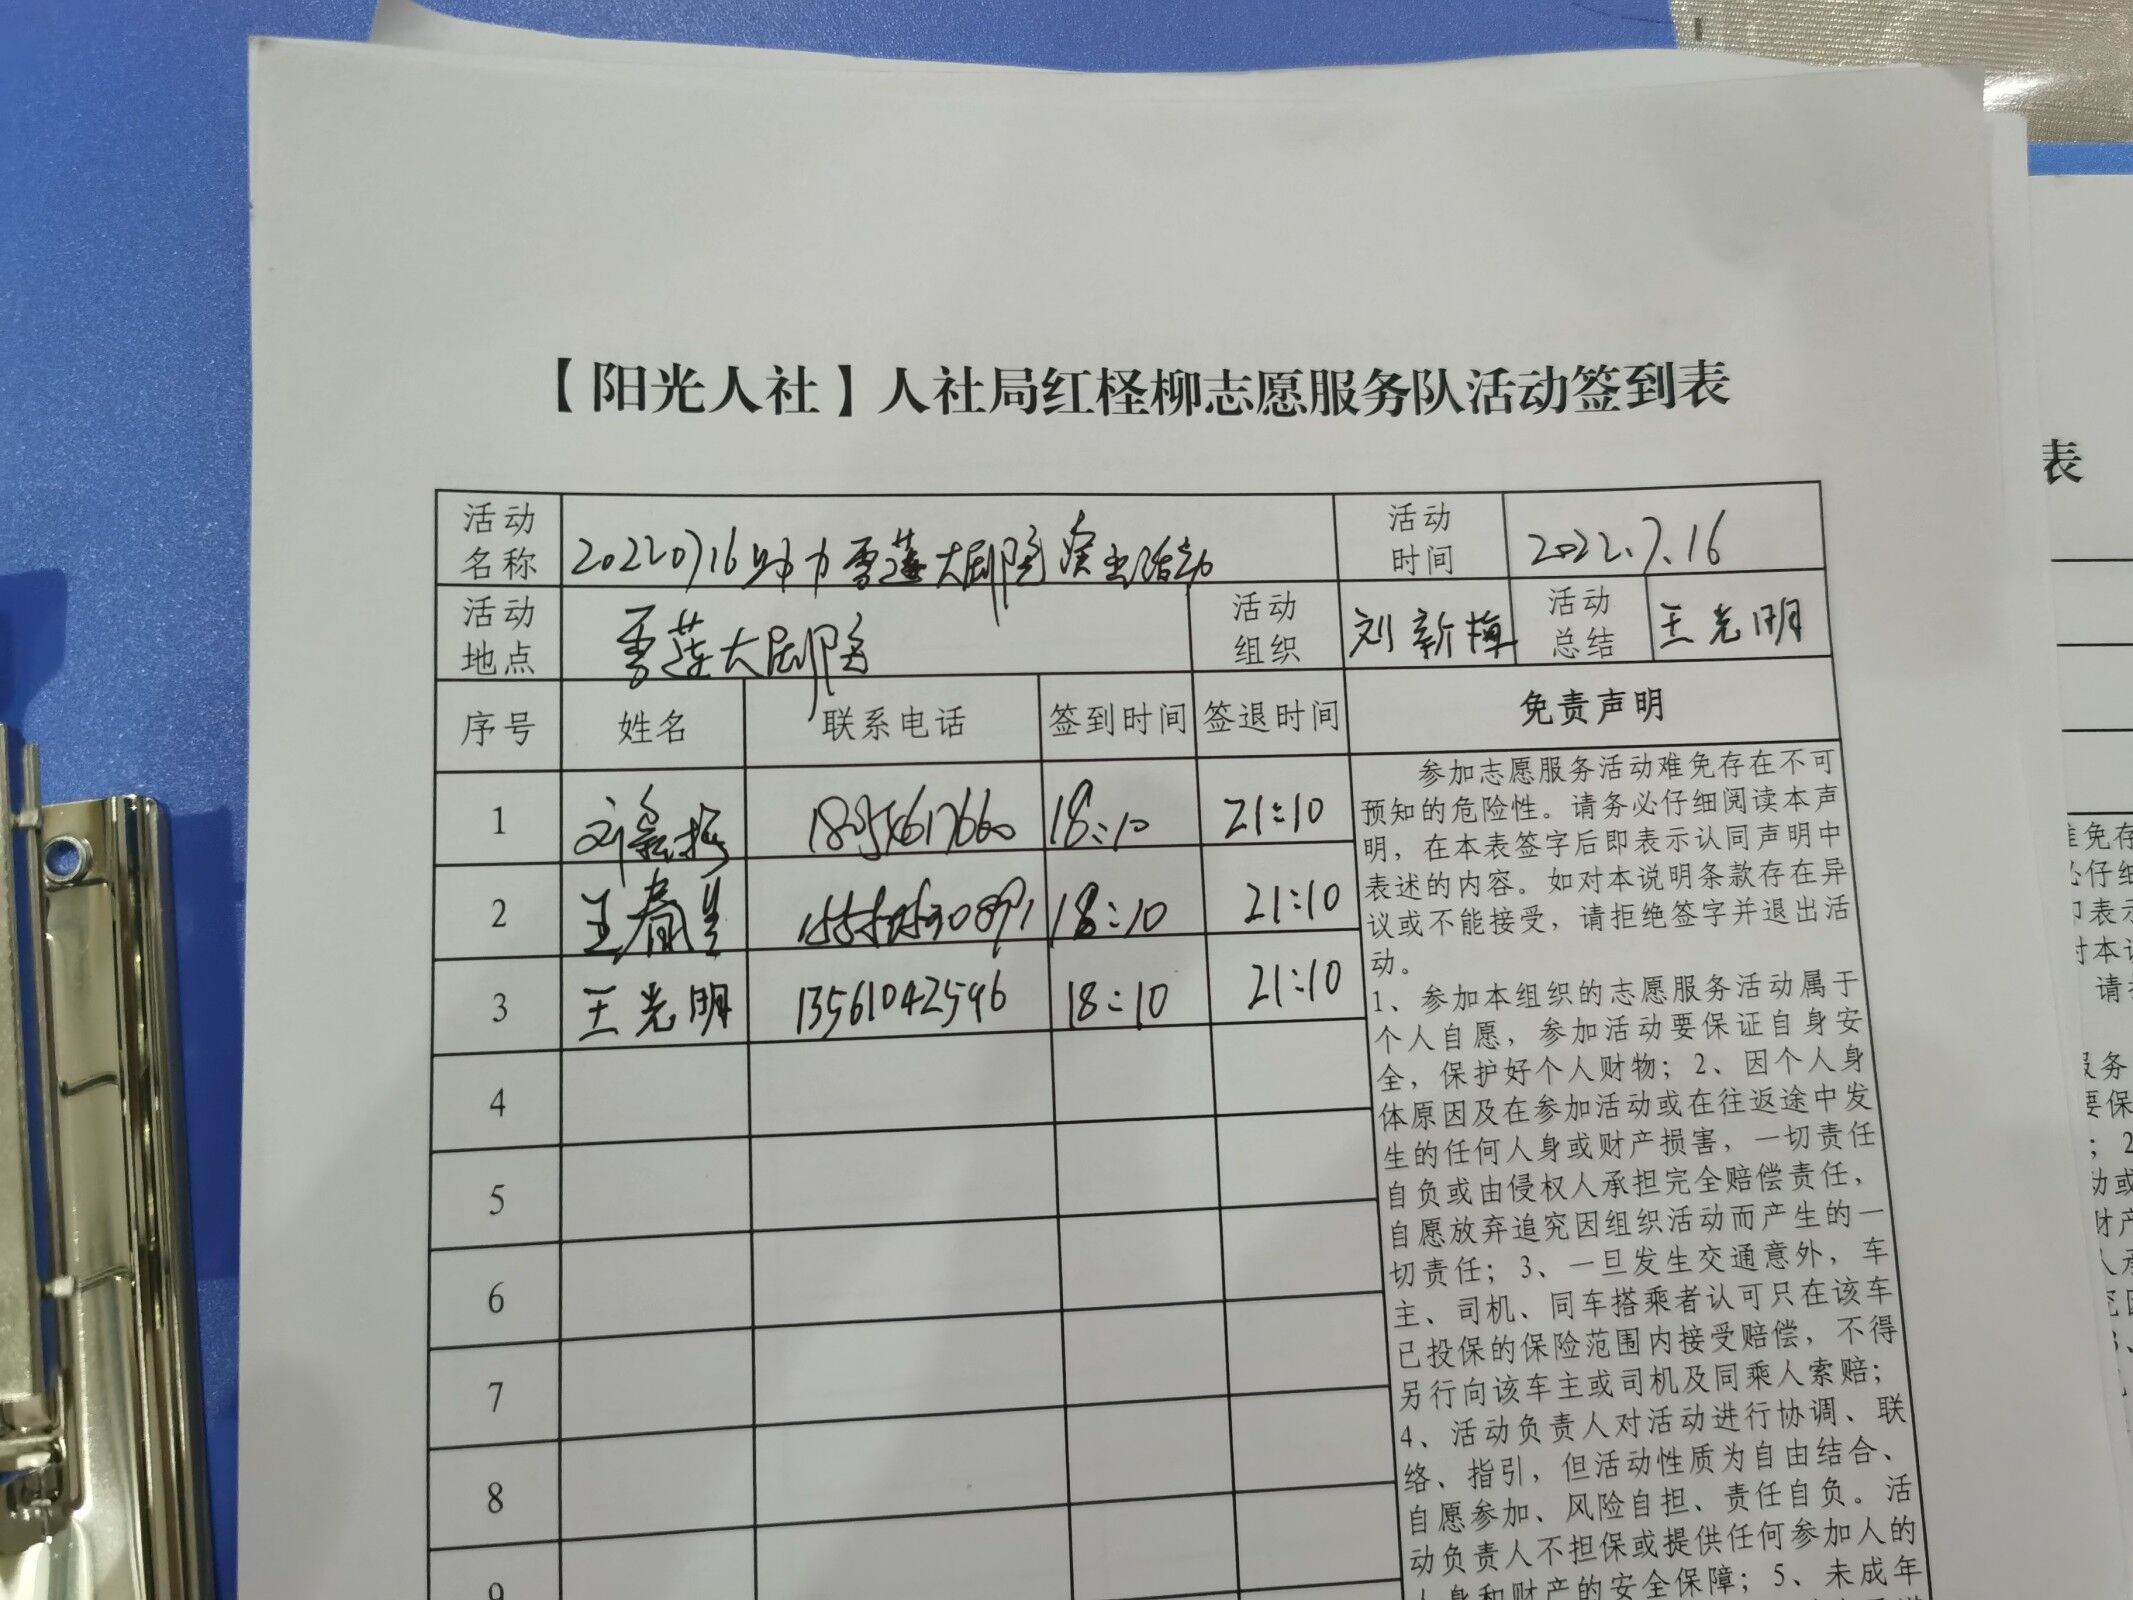 【阳光人社】人社局红柽柳志愿服务队活动签到表
活动名称 20220716助力雪莲大剧院演出活动 活动时间 2022.7.16
活动地点 雪莲大剧院 活动组织 刘新梅 活动总结 王光明
序号 姓名 联系电话 签到时间 签退时间 免责声明
1 刘新梅 18:10 21:10
2 王春 18:10 21:10
3 王光明 13561042596 18:10 21:10
4
5
6
7
8
9
参加志愿服务活动难免存在不可
预知的危险性。请务必仔细阅读本声
明，在本表签字后即表示认同声明中
表述的内容。如对本说明条款存在异
议或不能接受，请拒绝签字并退出活
动。
1、参加本组织的志愿服务活动属于
个人自愿，参加活动要保证自身安
全，保护好个人财物；2、因个人身
体原因及在参加活动或在往返途中发
生的任何人身或财产损害，一切责任
自负或由侵权人承担完全赔偿责任，
自愿放弃追究因组织活动而产生的一
切责任；3、一旦发生交通意外，车
主、司机、同车搭乘者认可只在该车
已投保的保险范围内接受赔偿，不得
另行向该车主或司机及同乘人索赔；
4、活动负责人对活动进行协调、联
络、指引，但活动性质为自由结合、
自愿参加、风险自担、责任自负。活
动负责人不担保或提供任何参加人的
人身和财产的安全保障；5、未成年
表
难免存
必仔细
即表示
对本说
请
服务
要保
；2
动或
财产